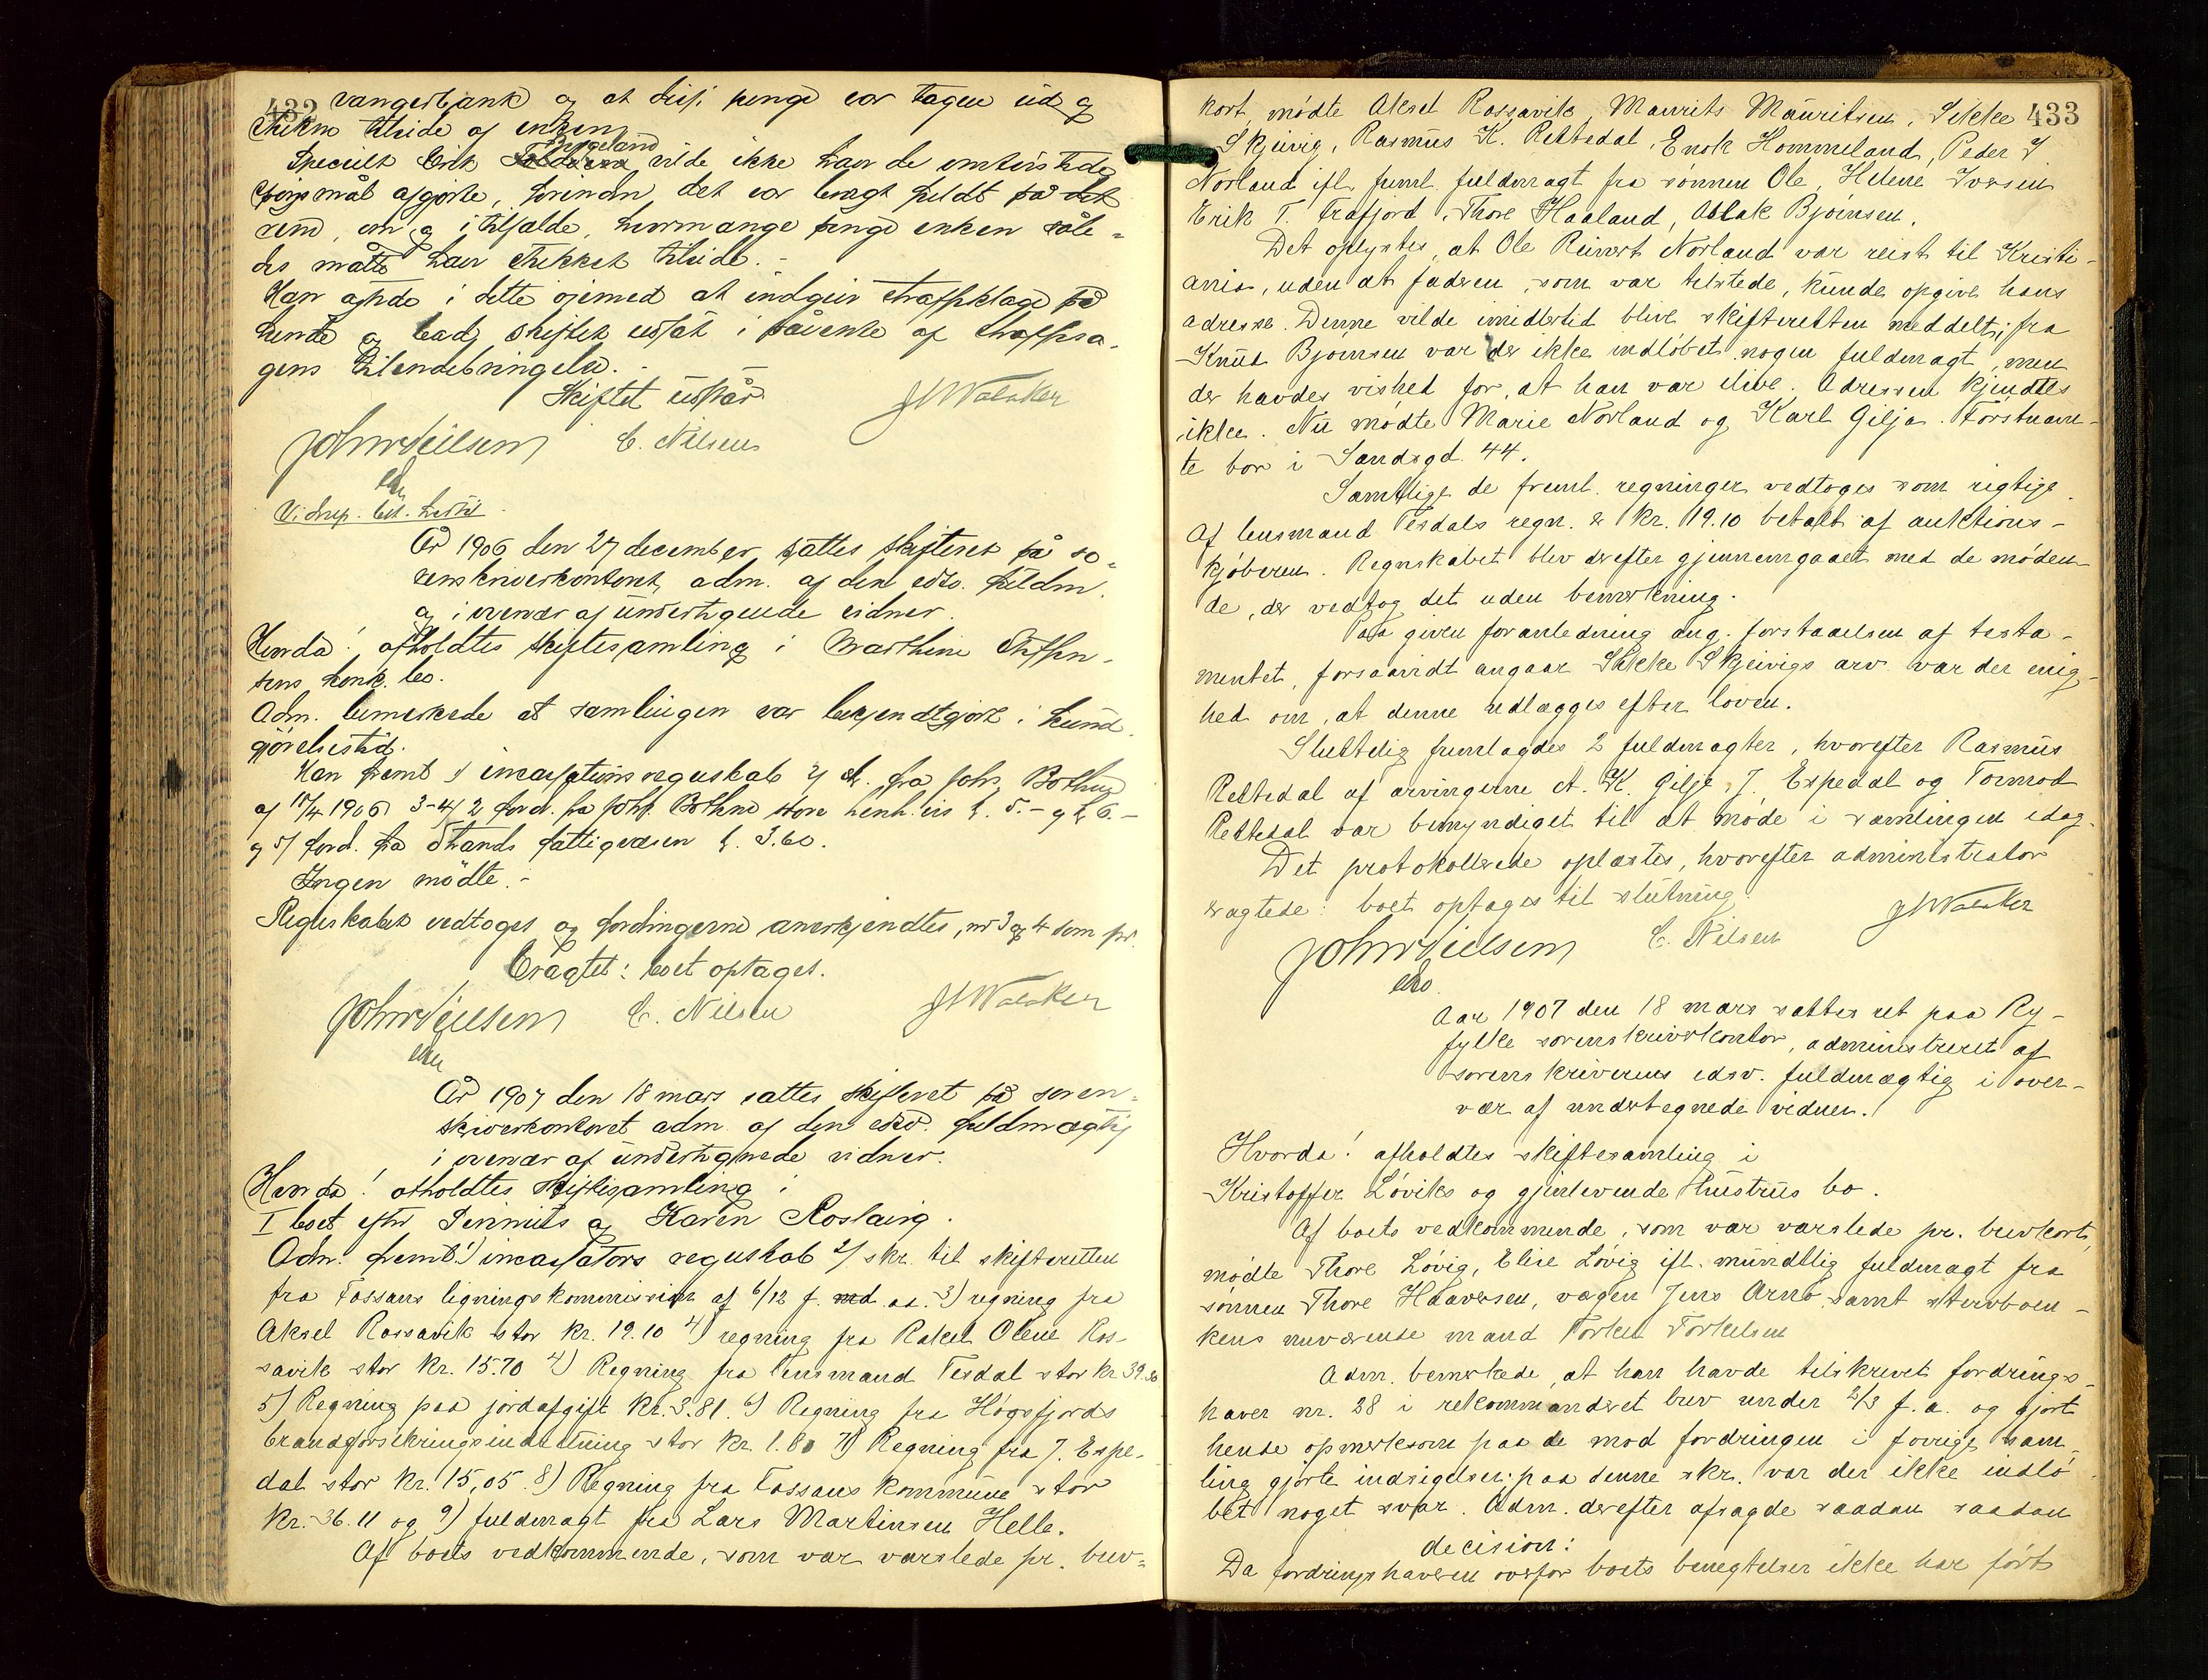 432
vangerbank og at disse penge var tagen ud og
stukne tilside af enken
Specielt Erik vilde ikke have de omtvistede
spørsmål afgjorte, førinden det var bragt fuldt på det
rene, om og i tilfælde, hvormange penge enken såle-
des måtte have stukket tilside. -
Han agtede i dette øiemed at indgive straffeklage på
hende og bad skiftet udsat i påvente af straffesa-
gens tilendebringelse. -
Skiftet udstår
John Nielsen C. Nilsen
År 1906 den 27 december sattes skifteret på so-
renskriverkontoret, adm. af den edsv. fuldm.
og i overvær af undertegnede vidner.
Hvorda! afholdtes skiftesamling i Marthine Steffen-
sens konk. bo.
Adm. bemerkede at samlingen var bekjendtgjort i kund-
gjørelsestid.
Han freml. 1) incassations regnskab 2) skr. fra Johs. Bothne
af 17/4 1906 3-4) 2 ford. fra Johs. Bothne store henh.vis k. 5.- og k. 6.-
og 5) ford. fra Strands fattigvæsen k. 3.60.
Ingen mødte. -
Regnskabet vedtoges og fordringerne anerkjendtes, nr 3 og 4 som pr.
Eragtet: boet optages.
John Nielsen C. Nilsen
År 1907 den 18 mars sattes skifteret på soren-
skriverkontoret adm. af den edsv. fuldmægtig
i overvær af undertegnede vidner.
Hvorda! afholdtes skiftesamling i
I boet efter og Karen Roslavig.
Adm. freml. 1) incassators regnskab 2) skr. til skifteretten
fra Fossans ligningskommission af 6/12 f. aa. 3) regning fra
Aksel Rossavik stor kr. 19.10 4) regning fra Rakel Olene Ros-
savik stor kr. 15.70 4) Regning fra lensmand Tesdal stor kr 39.
5) Regning paa jordafgift kr. 3.81. 6) Regning fra Høgsfjords
brandforsikringsindretning stor kr. 1.80 7) Regning fra J. Espe-
dal stor kr. 15,05 8) Regning fra Fossans kommune stor
kr. 36.11 og 9) fuldmagt fra Lars Martinsen Helle.
Af boets vedkommende, som var varslede pr. brev-
433
kort, mødte Aksel Rossavik, Maurits Mauritsen, Sikke
Skjeivig, Rasmus K. Rettedal, Enok Hommeland, Peder
Norland ifl. freml. fuldmagt fra sønnen Ole, Helene Iversen
Erik T. Frafjord, Thore Haaland, Aslak Bjørnsen,
Det oplystes, at Ole Reinert Norland var reist til Kristi-
ania, uden at faderen, som var tilstede, kunde opgive hans
adresse. Denne vilde imidlertid blive skifteretten meddelt; fra
Knut Bjørnsen var der ikke indløbet nogen fuldmagt, men
der havdes vished for, at han var ilive. Adressen kjendtes
ikke. Nu mødte Marie Norland og Karl Gilja. Førstnævn-
te bor i Sandsgd. 44.
Samtlige de freml. regninger vedtoges som rigtige.
Af lensmand Tesdals regn. er kr. 19.10 betalt af auktions-
kjøberen. Regnskabet blev derefter gjennemgaaet med de møden-
de, der vedtog det uden bemerkning.
Paa given foranledning ang. forstaaelsen af testa-
mentet, forsaavidt angaar Sikke Skjeivigs arv var der enig-
hed om, at denne udlægges efter loven.
Sluttelig fremlagdes 2 fuldmagter, hvorefter Rasmus
Rettedal af arvingerne A. K. Gilje, J. Espedal og Tormod
Rettedal var bemyndiget til at møde i samlingen idag.
Det protokollerede oplæstes, hvorefter administrator
eragtede: boet optages til slutning.
John Nielsen C. Nilsen
Aar 1907 den 18 mars sattes ret paa Ry-
fylke sorenskriverkontor, administreret af
sorenskriverens edsv. fuldmægtig i over-
vær af undertegnede vidner.
Hvorda! afholdtes skiftesamling i
Kristoffer Løviks og gjenlevende Hustrus bo.
Af boets vedkommende, som var varslede pr. brevkort,
mødte Thore Løvig, Elise Løvig ifl. mundtlig fuldmagt fra
sønnen Thore Haaversen, værgen Jens Arnø samt stervboen-
kens nuværende mand Torkel Torkelsen
Adm. bemerkede, at han havde tilskrevet fordrings-
haver nr. 28 i rekommanderet brev under 2/3 f. a. og gjort
hende opmerksom paa de mod fordringen i forrige sam-
ling gjorte indsigelser; paa denne skr. var der ikke indlø-
bet noget svar. Adm. derefter afsagde saadan saadan
decision:
Da fordringshaveren overfor boets benegtelser ikke har ført